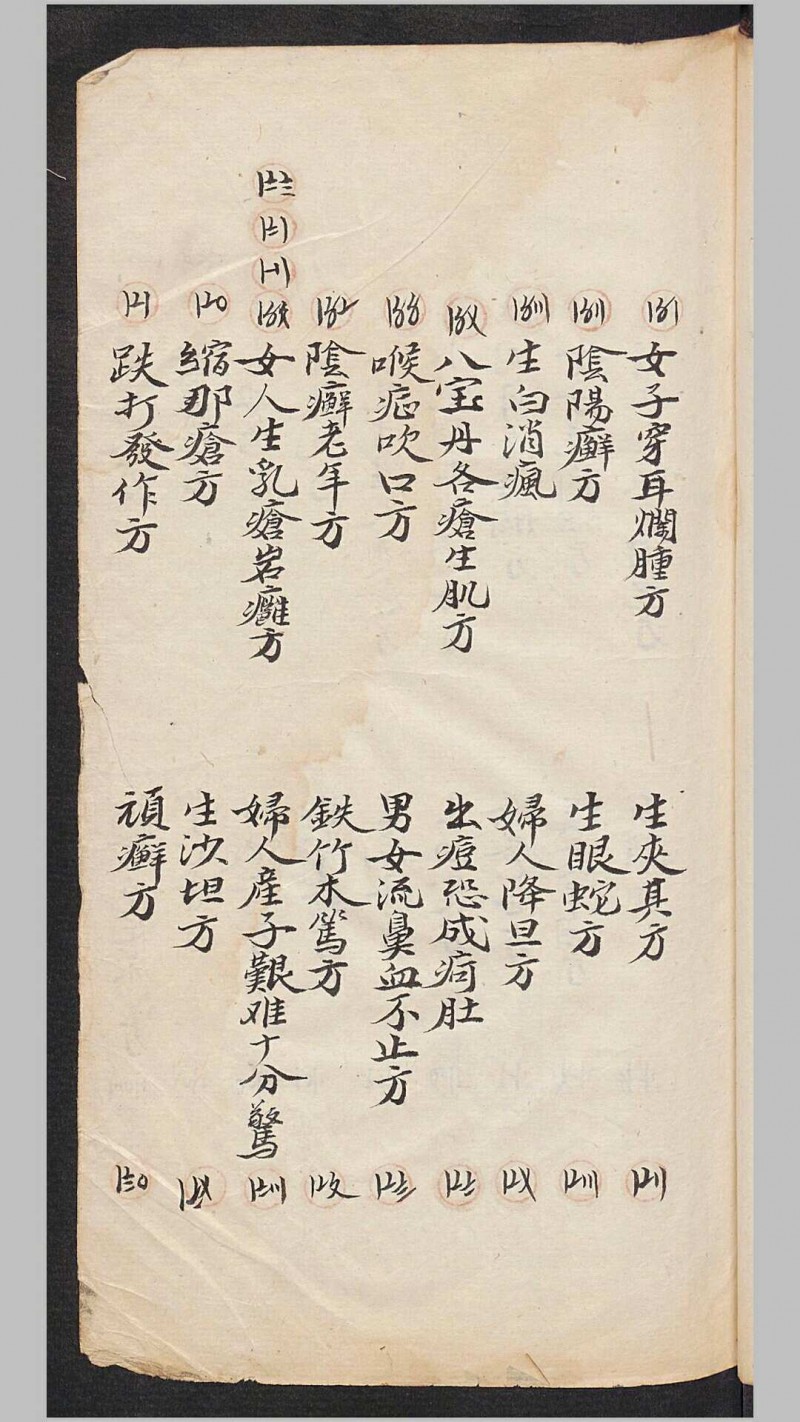 女子穿耳爛腫方
陰陽癬方
生白消瘋
八宝丹各瘡生肌方
喉症吹口方
陰癬老年方
女人生乳瘡岩癰方
縮那瘡方
跌打發作方
生夾其方
生眼蛇方
婦人降旦方
出痘恐成疴肚
男女流鼻血不止方
鉄竹木篤方
婦人産子艱难十分驚
生沙坦方
頑癬方